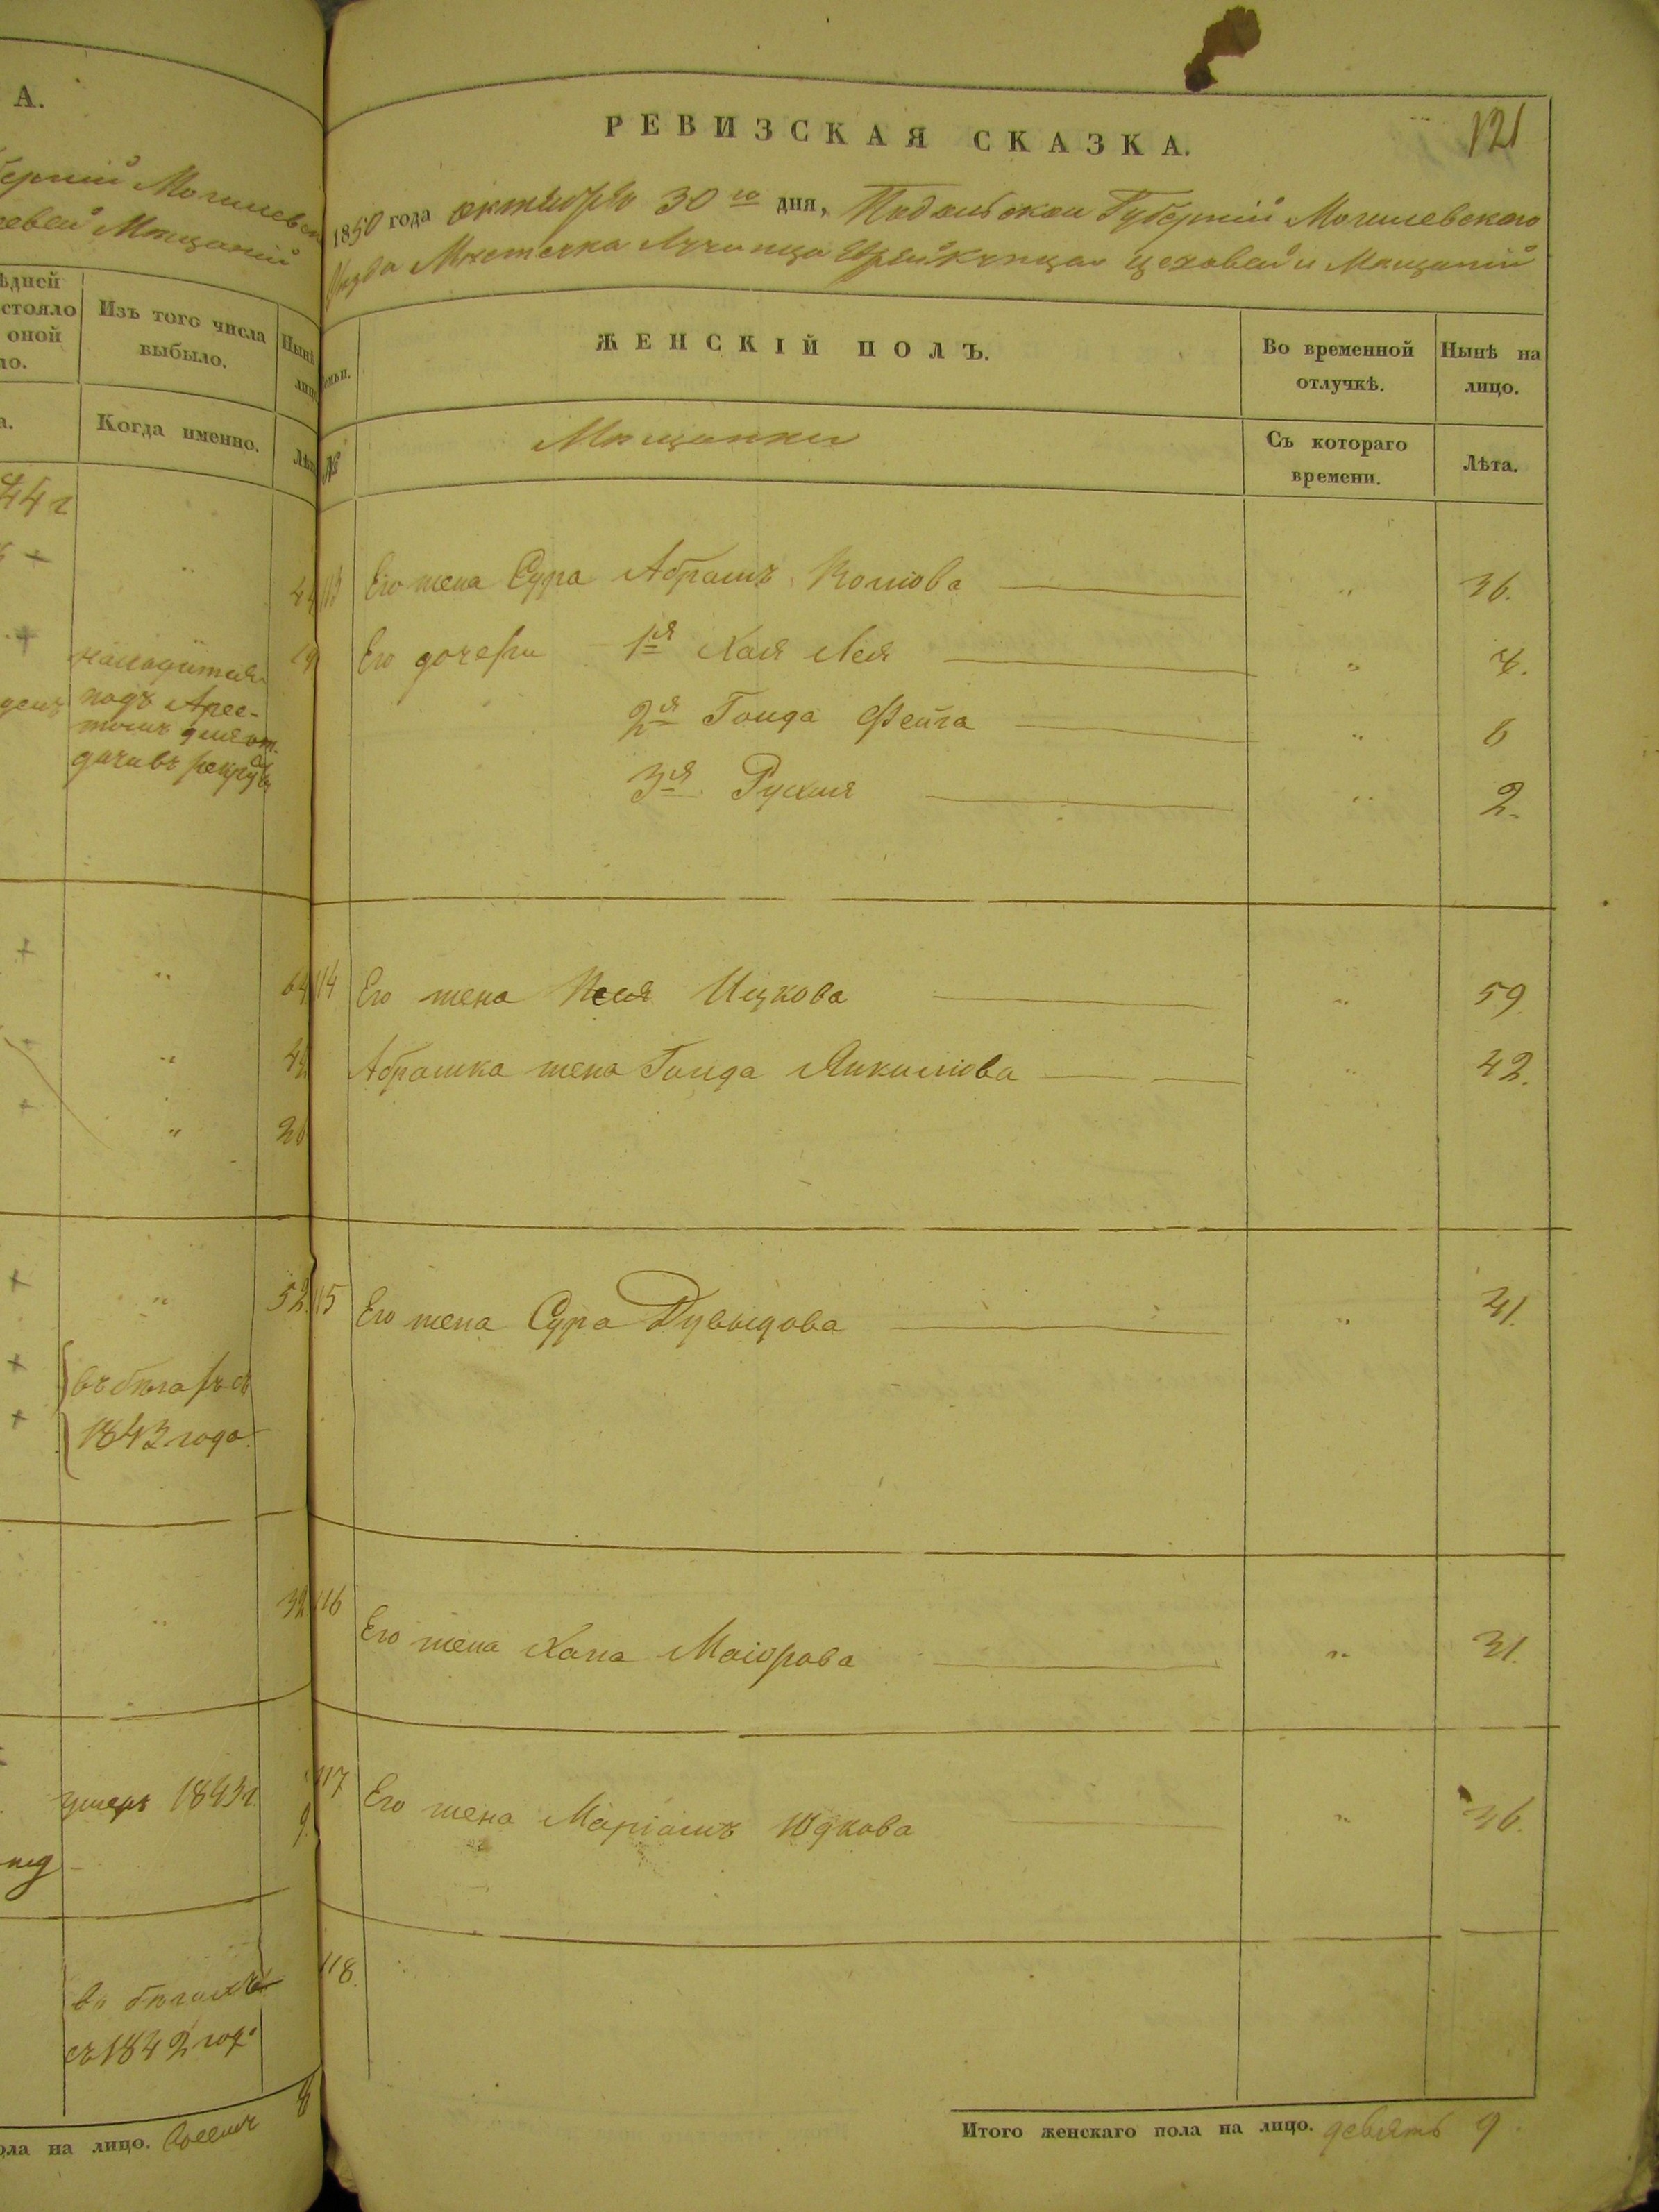 А.
берніи Могилевск
ховыхъ Мѣщаній
ѣдней
стояло
оной
ло.
Изъ того числа
выбыло.
Нынѣ
лицо
а.
Когда именно.
Лѣта
44 г
находится
подъ Арес-
томъ для от
дачи въ рекру
19
64
44
20
52.
въ бѣгахъ съ
1843 года.
32
умеръ 1843 г.
9.
въ бѣгахъ
съ 1842 год
8
ола на лицо. восемь
121
РЕВИЗСКАЯ СКАЗКА.
1850 года октября 30го дня, Подольской Губерніи Могилевскаго
Уѣзда Мѣстечка Лучинца Еврейскихъ цеховыхъ и Мѣщаній
семьи.
ЖЕНСКІЙ ПОЛЪ.
Во временной
отлучкѣ.
Нынѣ на
лицо.
№
Мѣщанки
Съ котораго
времени.
Лѣта.
113 Его жена Сура Абрамъ " 36.
Его дочери 1я Хая Лея " 7.
2я Голда Фейга " 6
3я Рухля " 2.
114 Его жена Песя Ицкова " 59.
Абрашка жена Голда Янкилова " 42.
115 Его жена Сура Дувыдова " 41.
116 Его жена Хана Маіорова " 31.
117 Его жена Маріамъ Юдкова " 36.
118.
Итого женскаго пола на лицо. девять 9.